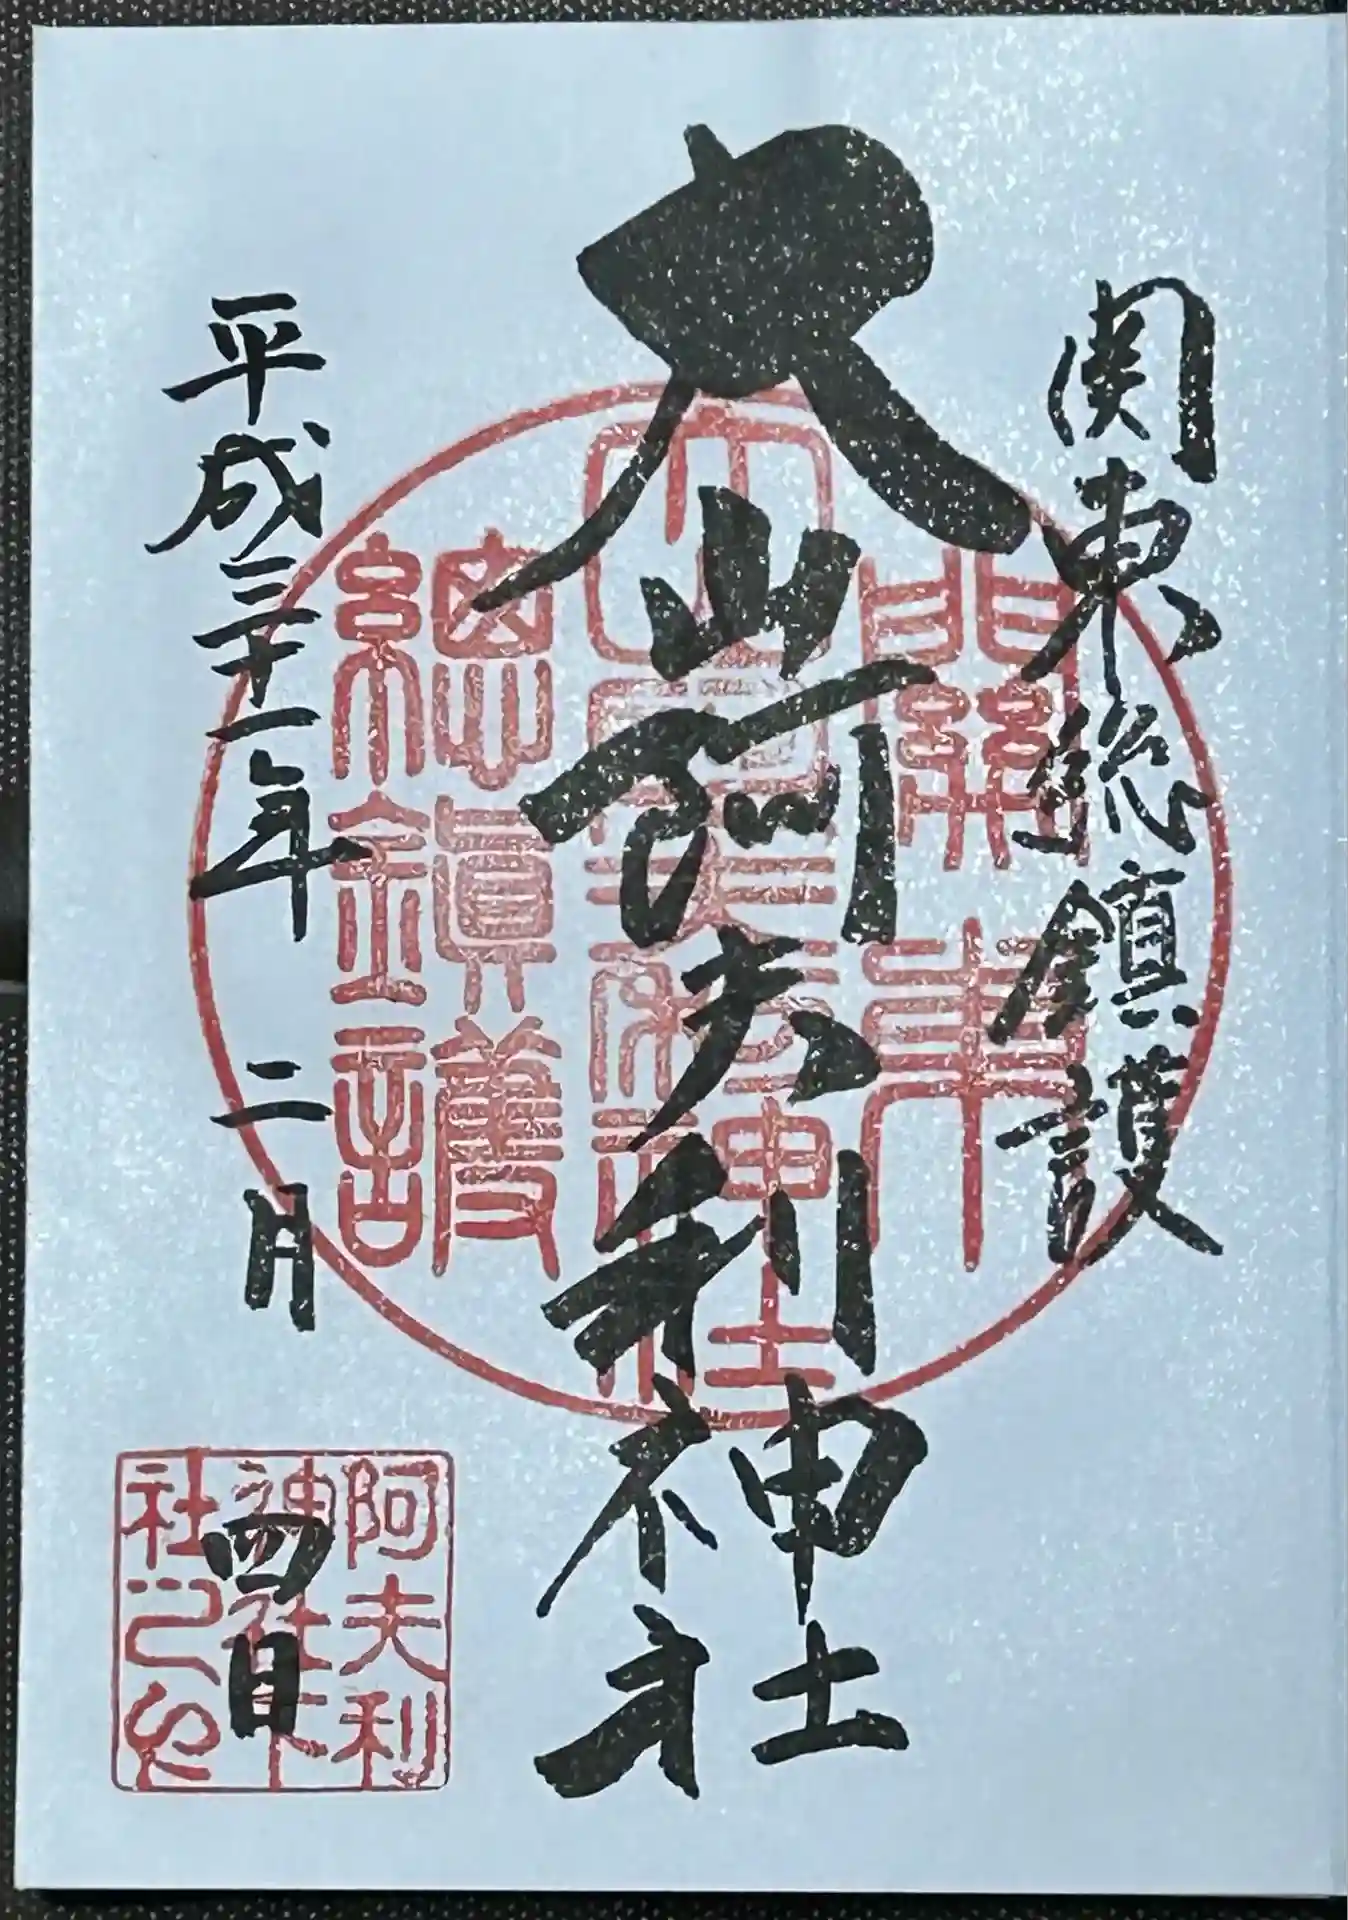 関東総鎮護
大山阿夫利神社
平成三十一年 二月 四日
關東
大山阿夫利神社
總鎮護
阿夫利
神社下
社之印